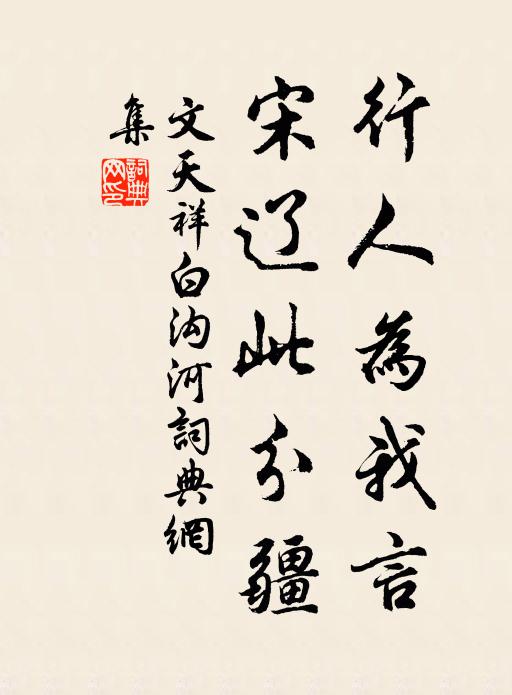 行人為我言
宋辽此分疆
文天祥白沟河詞典網
集
詞典
网印